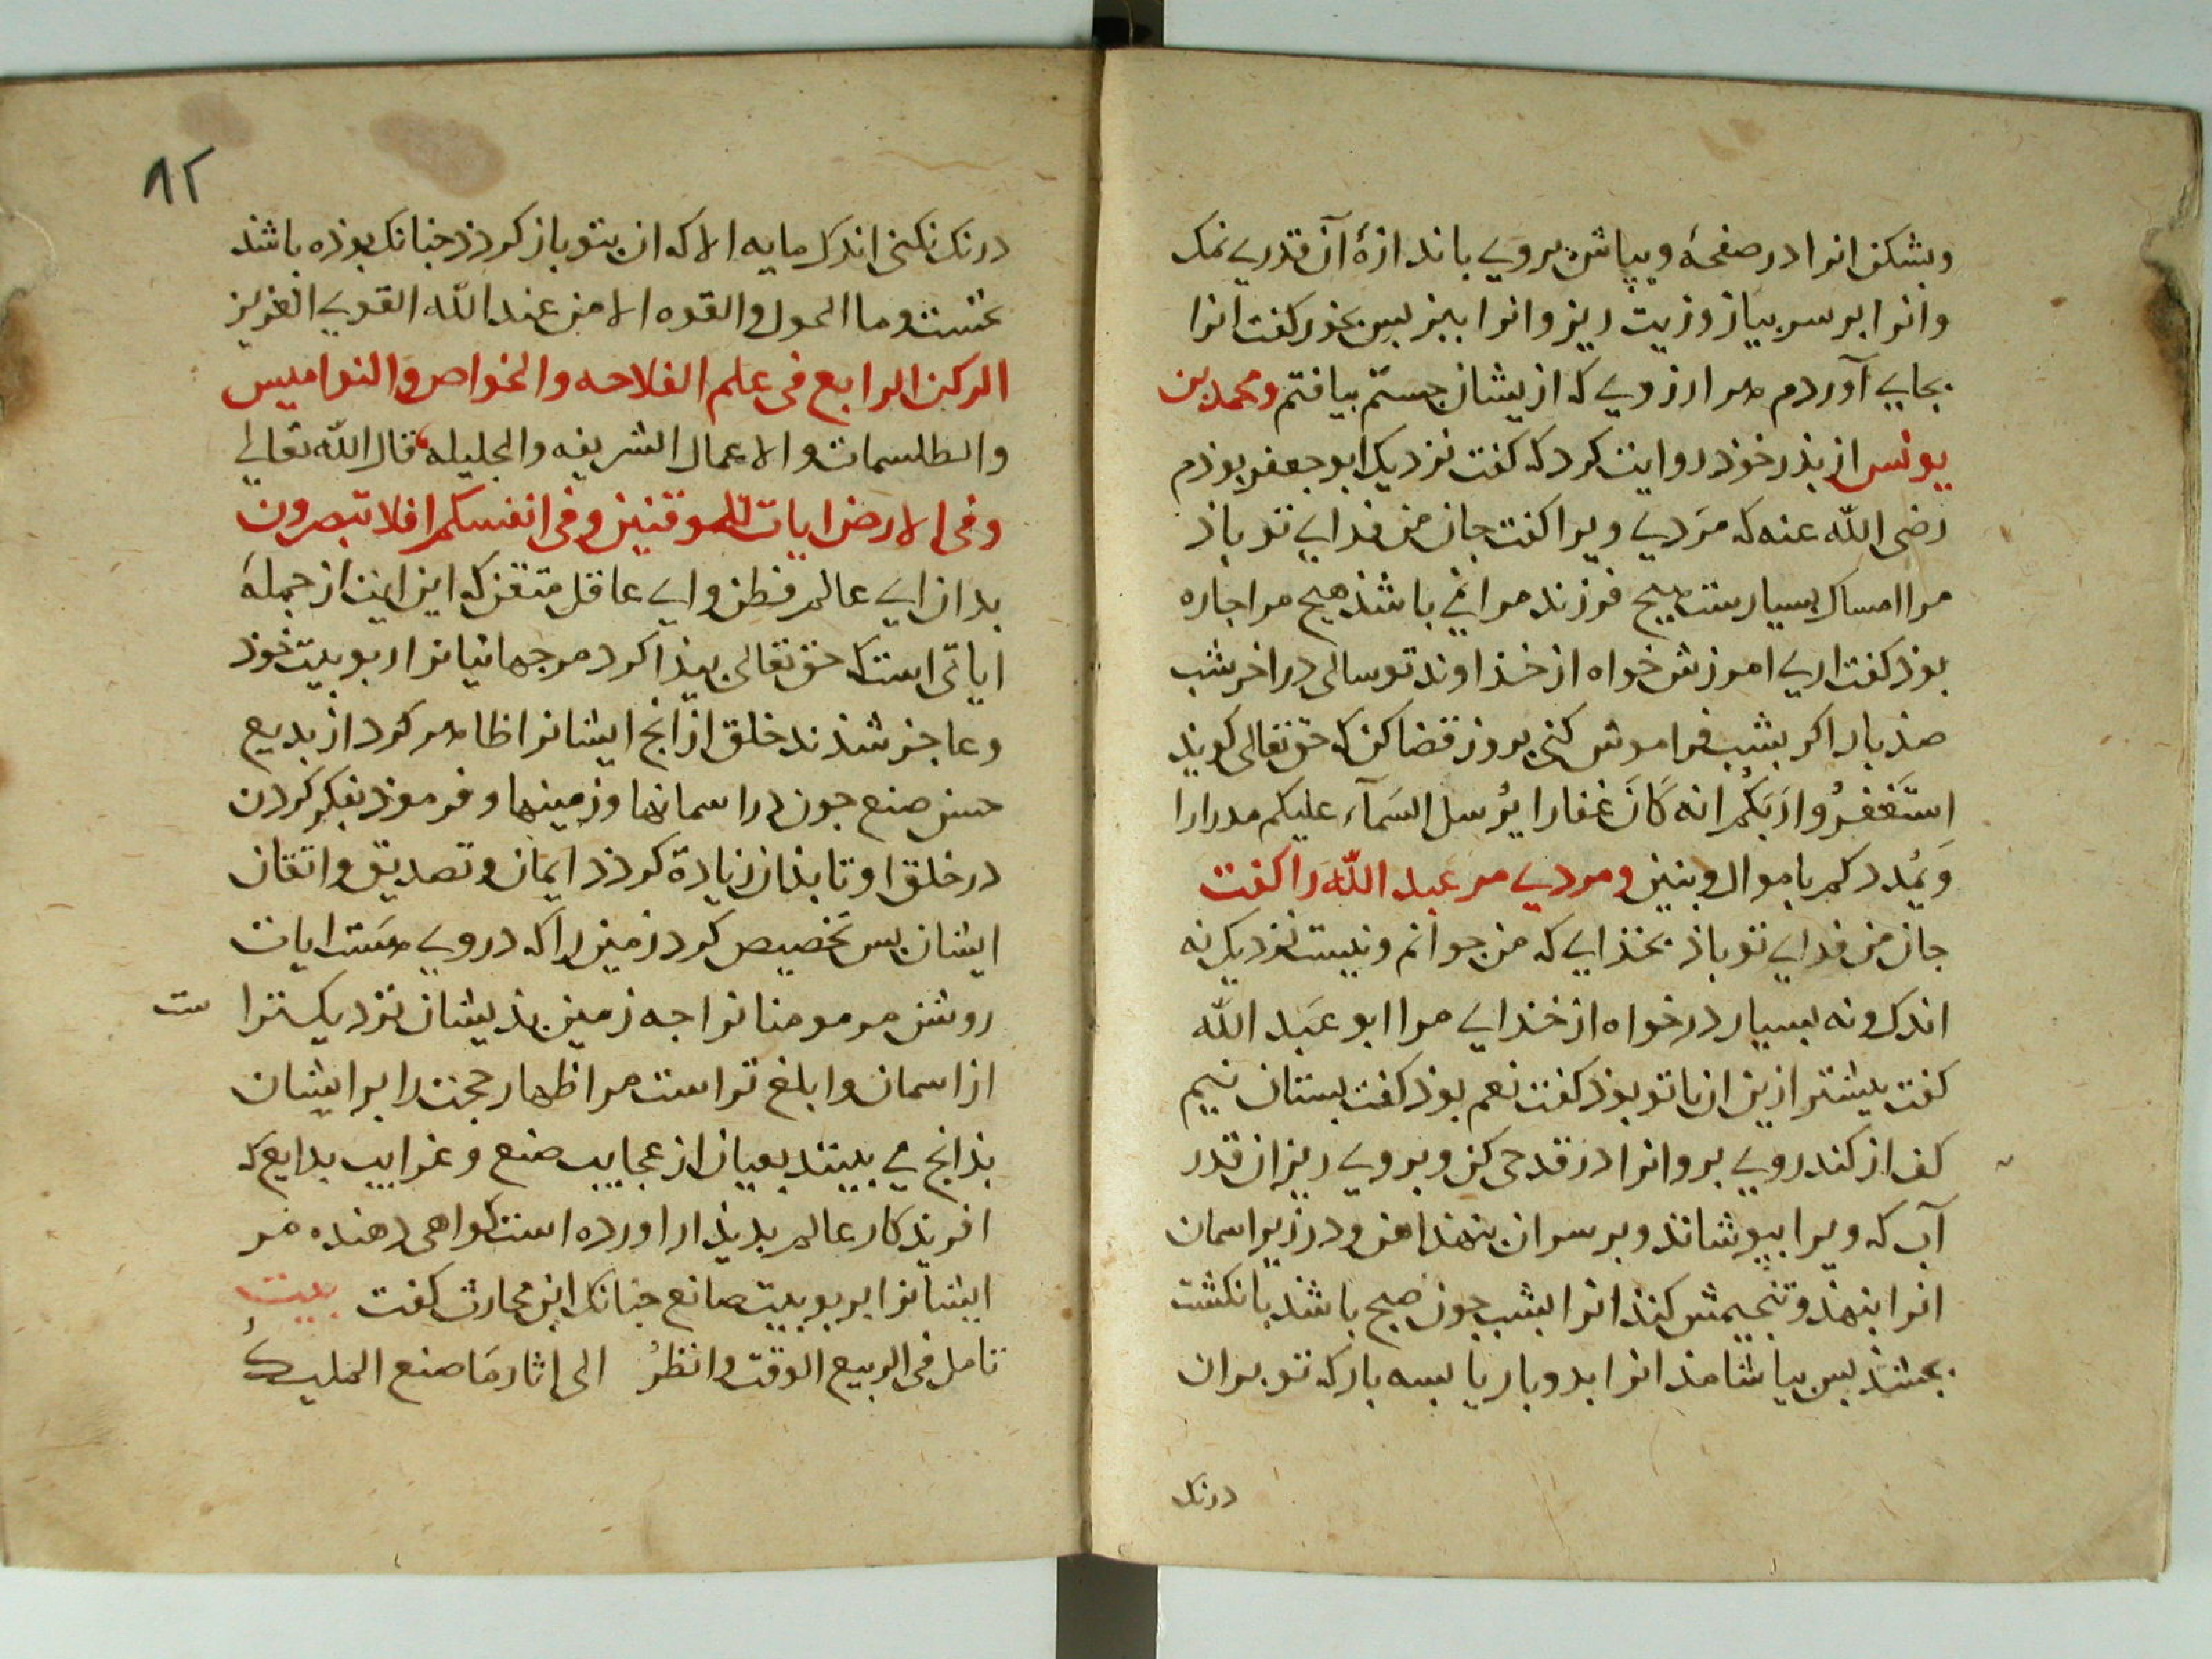 وبشکن انرا در صفحهٔ وبپاش بروی باندازهٔ آن قدری نمک
وانرا بر سر پیاز وزیت ریز وانرا ببز بس بخور کفت انرا
بجایی آوردم هر ارزویی که از یشان جستم بیافتم ومحمد بن
یونس از بذر خوذ روایت کرد که کفت نزدیک ابو جعفر بوذم
رضی الله عنه که مردی ویرا کفت جان من فدایی تو باذ
مرا امساک بسیارست هیچ فرزند مرا نمی باشذ هیچ مرا جاره
بوذ کفت اری امرزش خواه از خذاوند تو سالی در اخر شب
صذ بار اکر بشب فراموش کنی بروز قضا کن که حق تعالی کویذ
اسْتَغْفِرُوا رَبَكُم انه كَانَ غفارا يُرسل السَمآء عليكم مدرارا
وَيُمْددكم باموال وبنين ومردی مر عبد الله را کفت
جان من فدایی تو باذ بخذایی که من جوانم ونیست نزدیک نه
اندک ونه بسیار درخواه از خذایی مرا ابو عَبد الله
کفت بیشتر ازین ان باتو بوذ کفت نعم بوذ کفت بستان نیم
کف از کندرویی بر وانرا در قدحی کن وبرویی ریز ان قدر
آب که ویرا ببوشاند وبر سر ان بنهذ اهن ودر زیر اسمان
انرا بنهذ وتنجیمش کنذ انرا بشب جون صبح باشذ بانکشت
بس بیاشامذ انرا بدو بار یا بسه بار که تو بر ان
درنک
٨٢
درنک نکنی اندک مایه الا که ان بتو باز کردذ جنانک بوذه باشذ
نخست وما الحول والقوه الا من عند الله القوی العزیز
الرکن الرابع فی علم الفلاحه والخواص والنوامیس
والطلسمات والاعمال الشریفه والجلیله قال الله تعالی
وفی الارض ایات للموقنین وفی انفسکم افلا تبصرون
بدان ای عالم فطن وای عاقل متقن که این ایت از جملهٔ
ایاتی است که حق تعالی بیذا کرد مر جهانیانرا ربوبیت خوذ
وعاجز شذند خلق از انج ایشانرا ظاهر کرد از بدیع
حسن صنع جون در اسمانها وزمینها وفرموذ بفکر کردن
در خلق او تا بذان زیادة کردذ ایمان وتصدیق واتقان
ایشان بس تخصیص کرد زمین را که در وی هَست ایات
روشن مر مومنانرا جه زمین بذیشان نزدیکترا
ست
از اسمان وابلغ تراست مر اظهار حجت را بر ایشان
بذانج می بینند بعیان از عجایب صنع وغرایب بدایع که
افریدکار عالم بدیذار اورده است کواهی دهنده مر
ایشانرا بربوبیت صانع جنانک ابن محارث کفت بیت
تامل فی الربیع الوقت وانظُر الی اثار مَا صنع الملیكُ